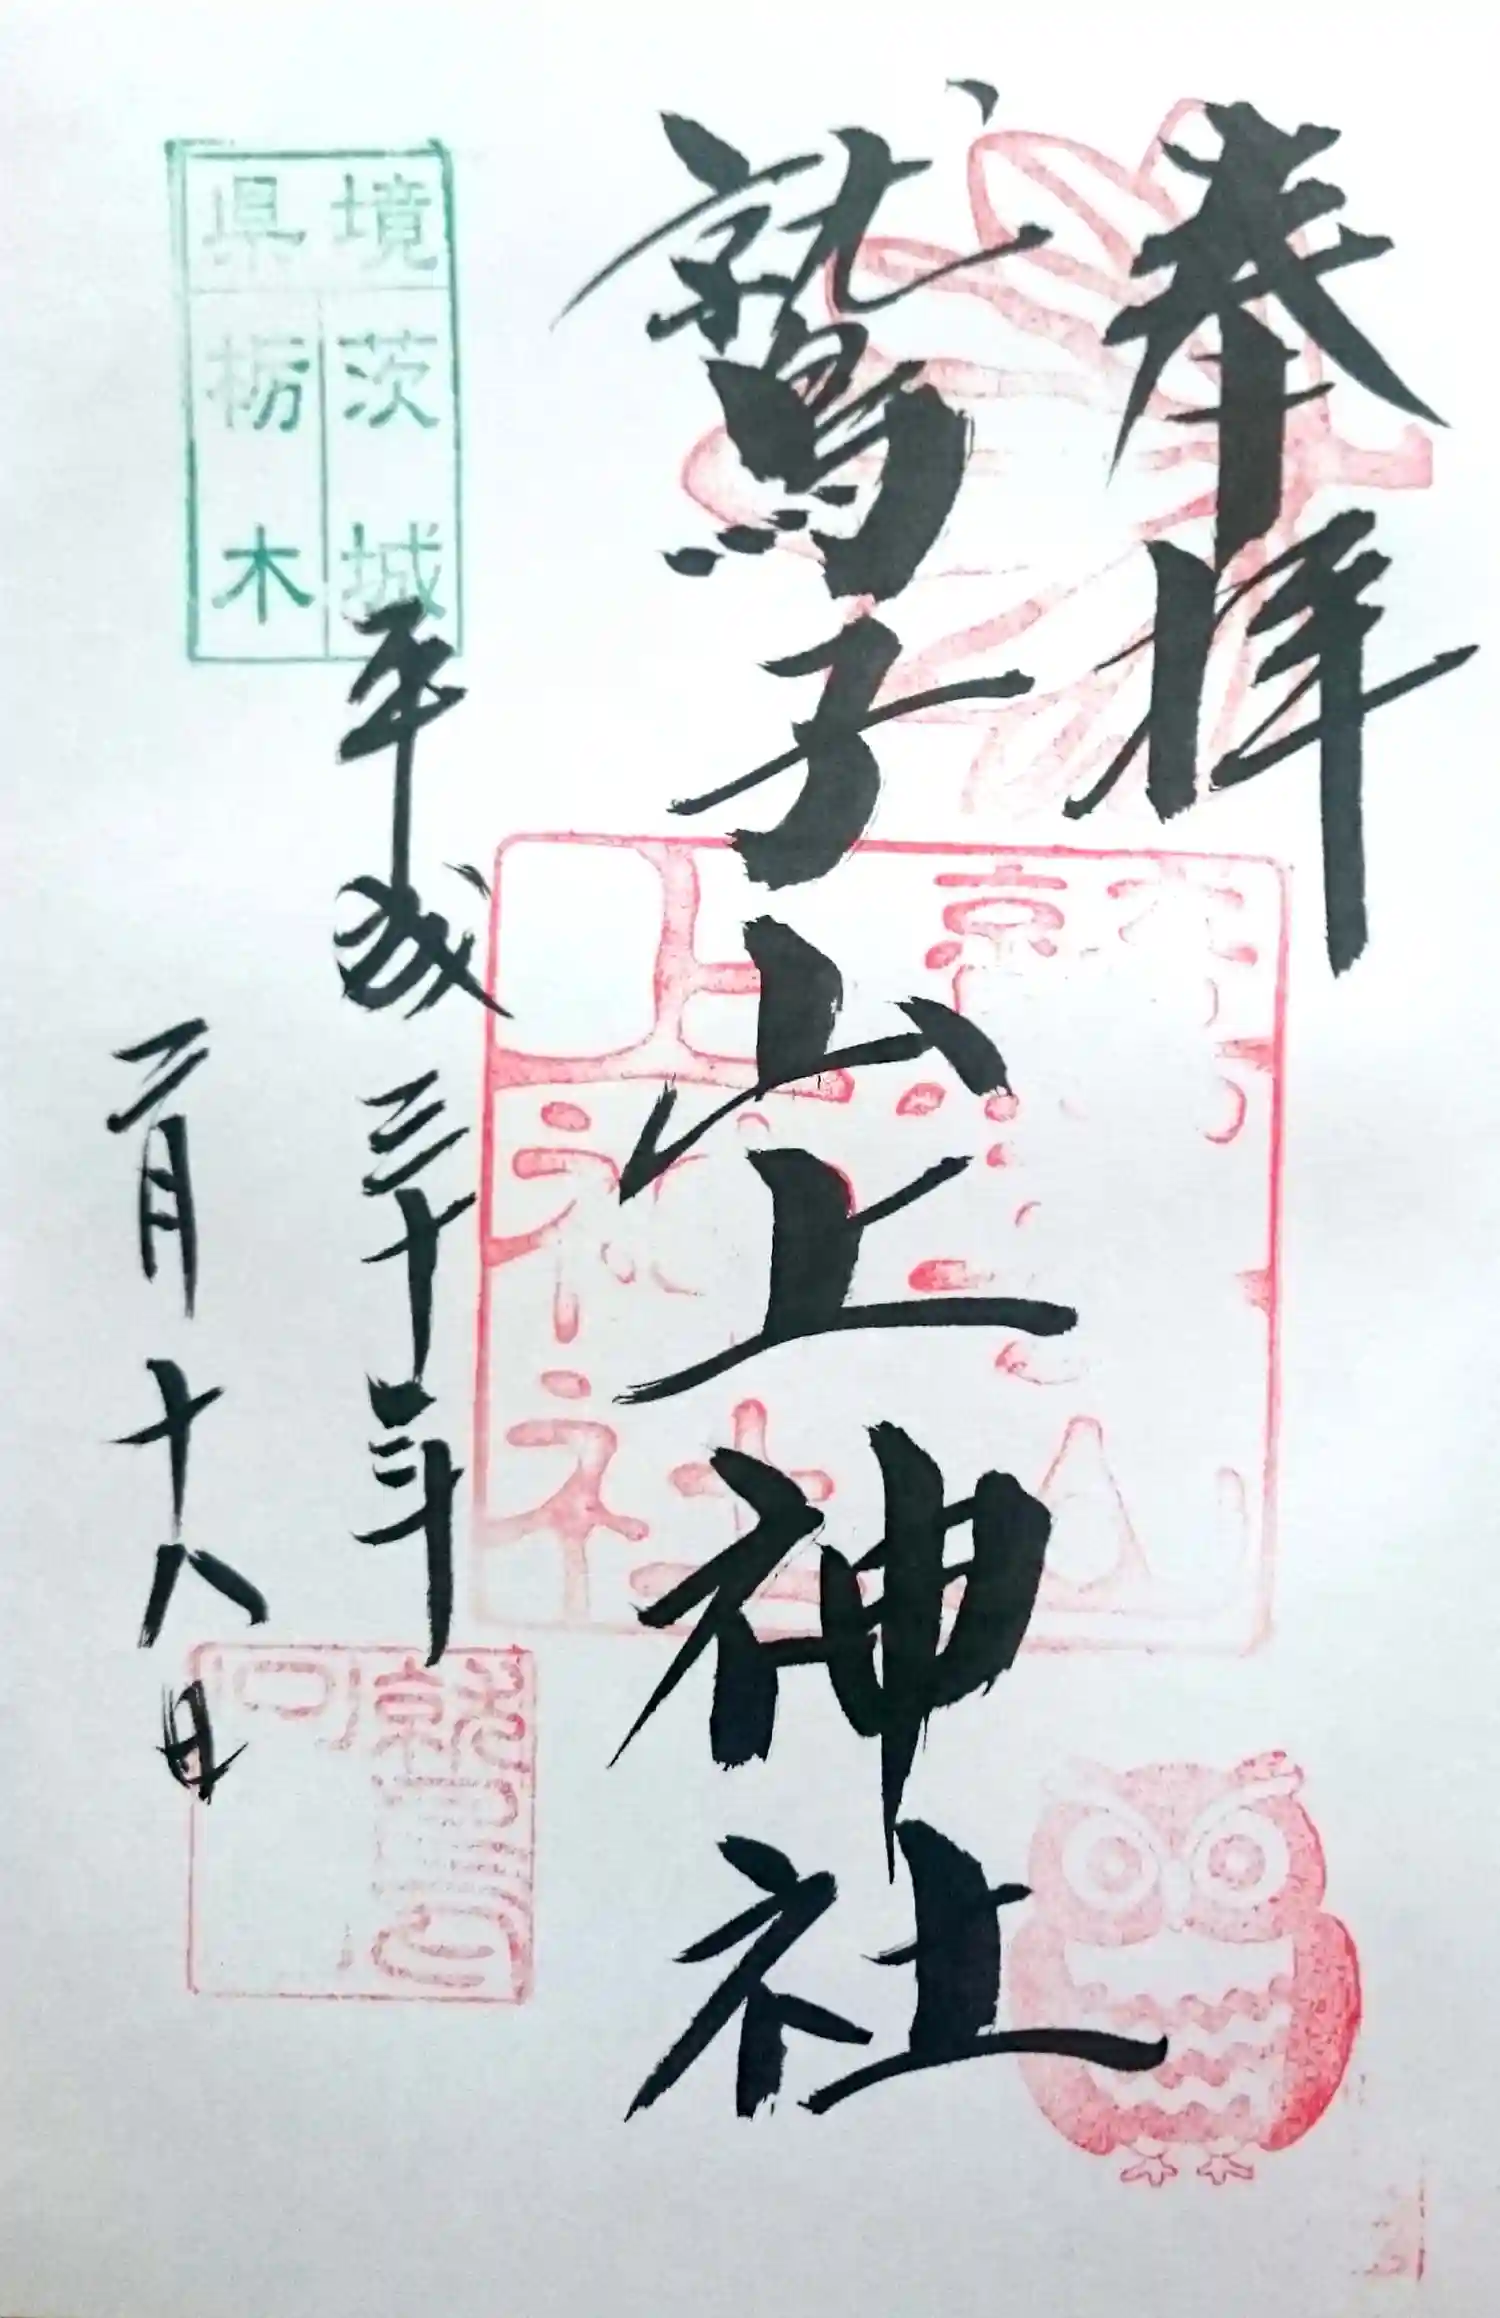 奉拝
鷲子山上神社
平成三十年
二月十八日
県境
茨城
栃木
鷲子山
上神社